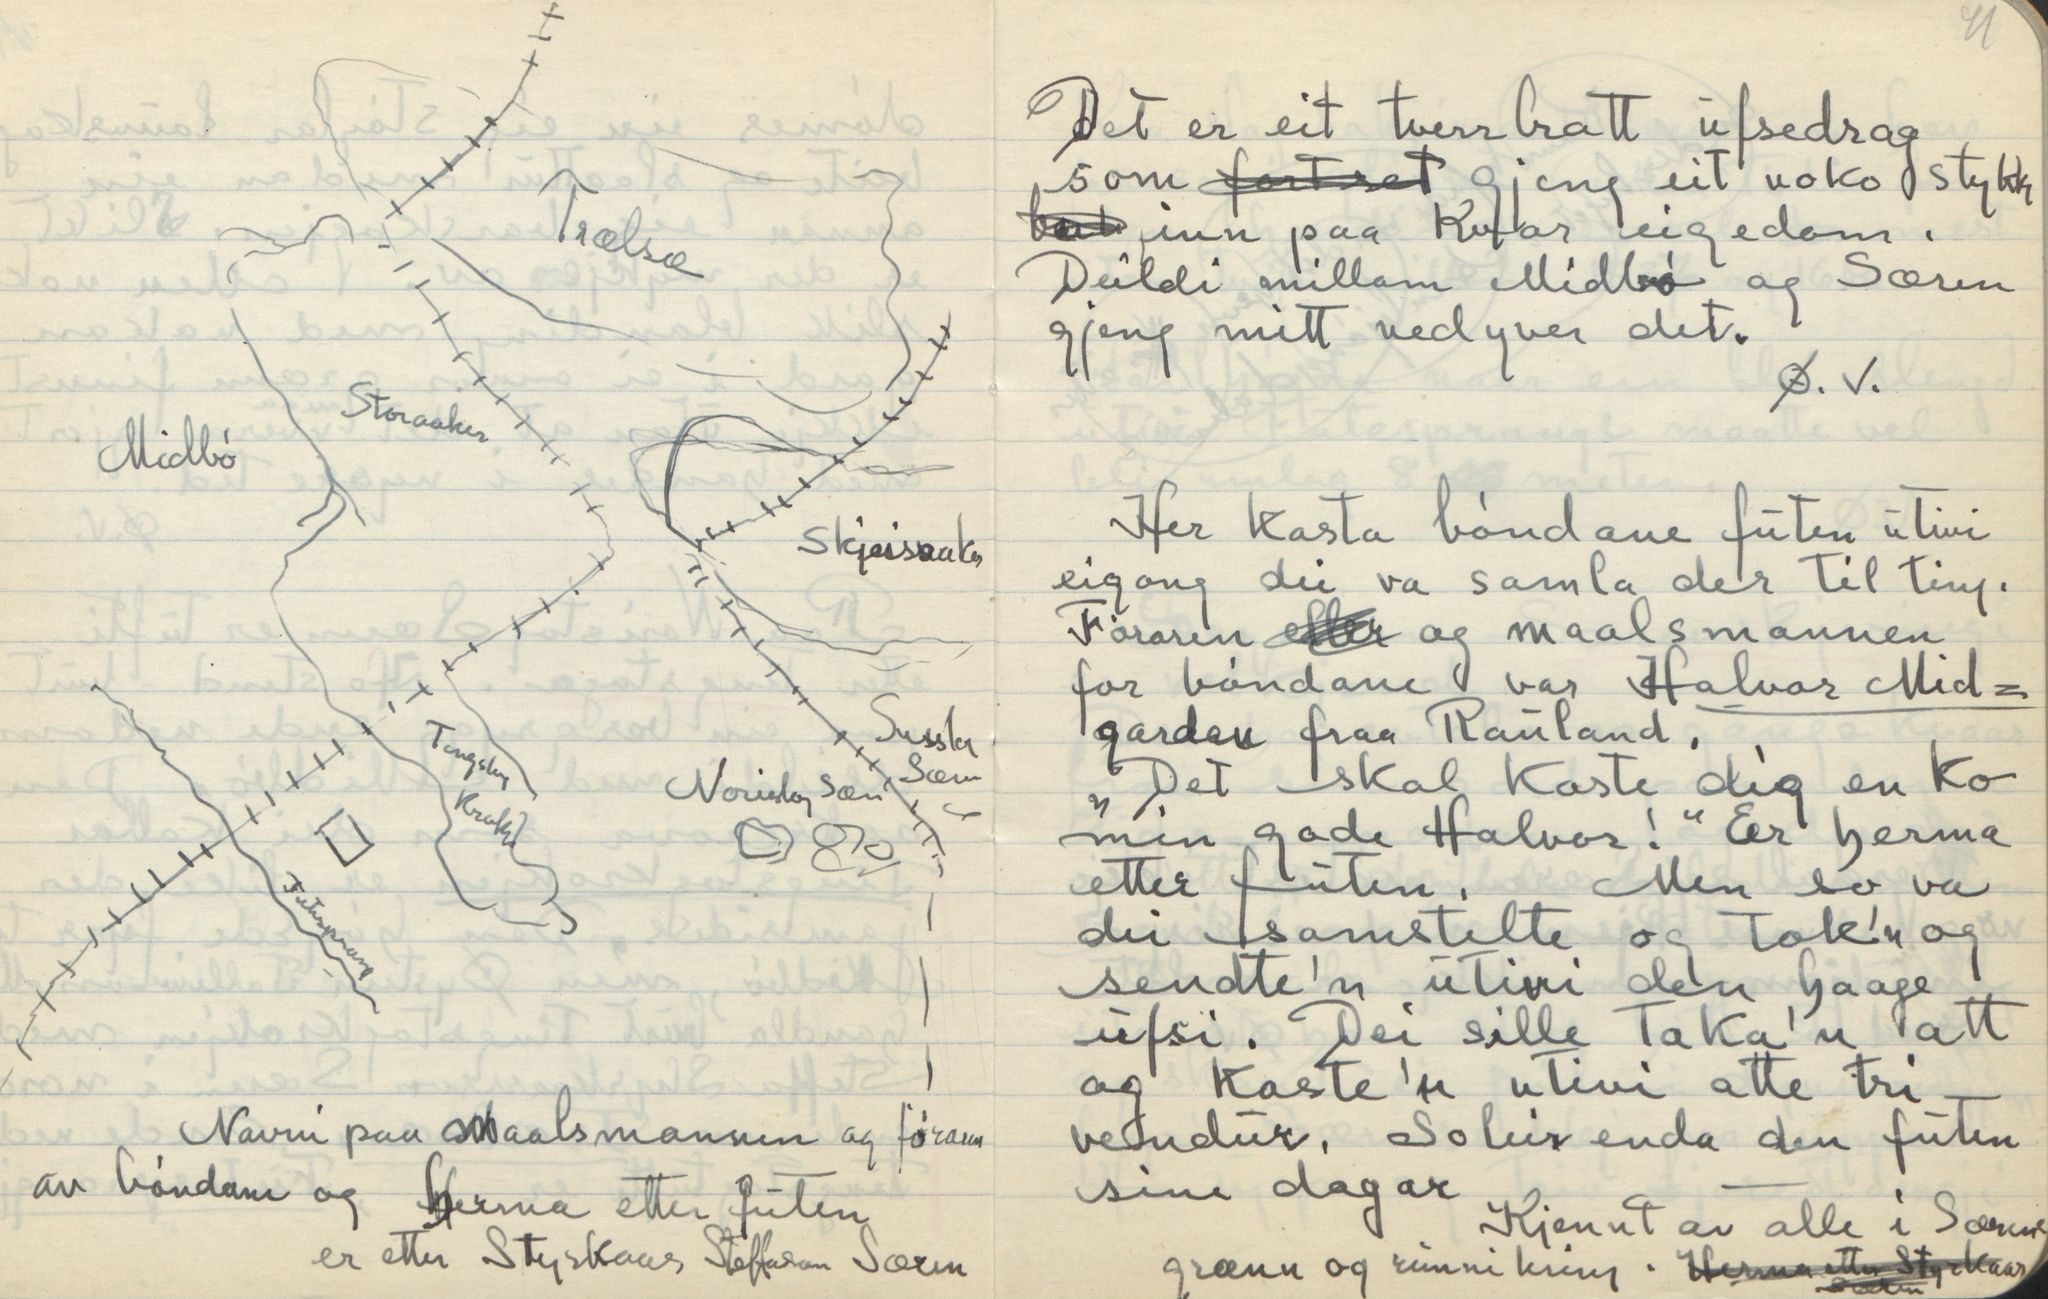 Trælsæ
Storaaker
Midbó
Skjeisaaker
Tingstog
Krokk
Nørdstog Sæn
Sæm
Futesprang
Navni paa maalsmannen ag fóraren
av bóndane og herma etter fúten
er etter Styrkaar Steffason Særen
41
Det er eit tverrbratt úfsedrag
som fortset gjeng eit noko stykkj
inn paa Kvar eigedom.
Deildi millom Midbó og Særen
gjeng mitt nedyver det.
Ø. V.
Her kasta bóndane fúten útivi
eigong dei va samla der til ting.
Fóraren eller og maalsmannen
for bóndane var Halvor Mid=
garden fraa Raúland.
„Det skal koste dig en ko
min gode Halvor!" Er herma
etter fúten. Men so va
dei samstelte og tok'n og
sendte'n útivi den haage
úfsi. Dei sille taka'n att
og kaste'n utivi atte tri
vendúr. Soleis enda den fúten
sine dagar
Kjennt av alle i Særens
grænn og rúnni kring. Herma etter Styrkaar
Særen